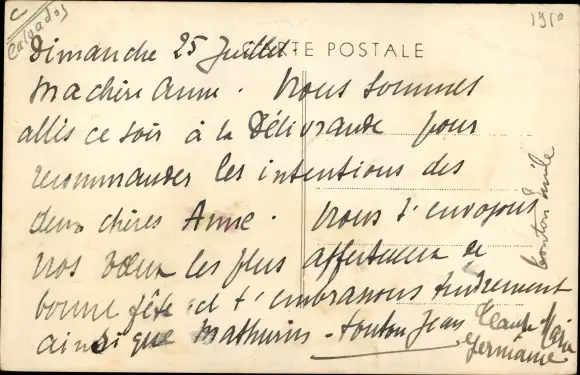 Calvados
1950
CARTE POSTALE
Dimanche 25 Juillet.
Ma chère Anne. Nous sommes
allés ce soir à la Délivrande pour
recommander les intentions des
deux chères Anne. Nous t'envoyons
nos vœux les plus affectueux de
bonne fête et t'embrassons tendrement
ainsi que Mathurin - tonton Jean
Germaine
tonton Emile